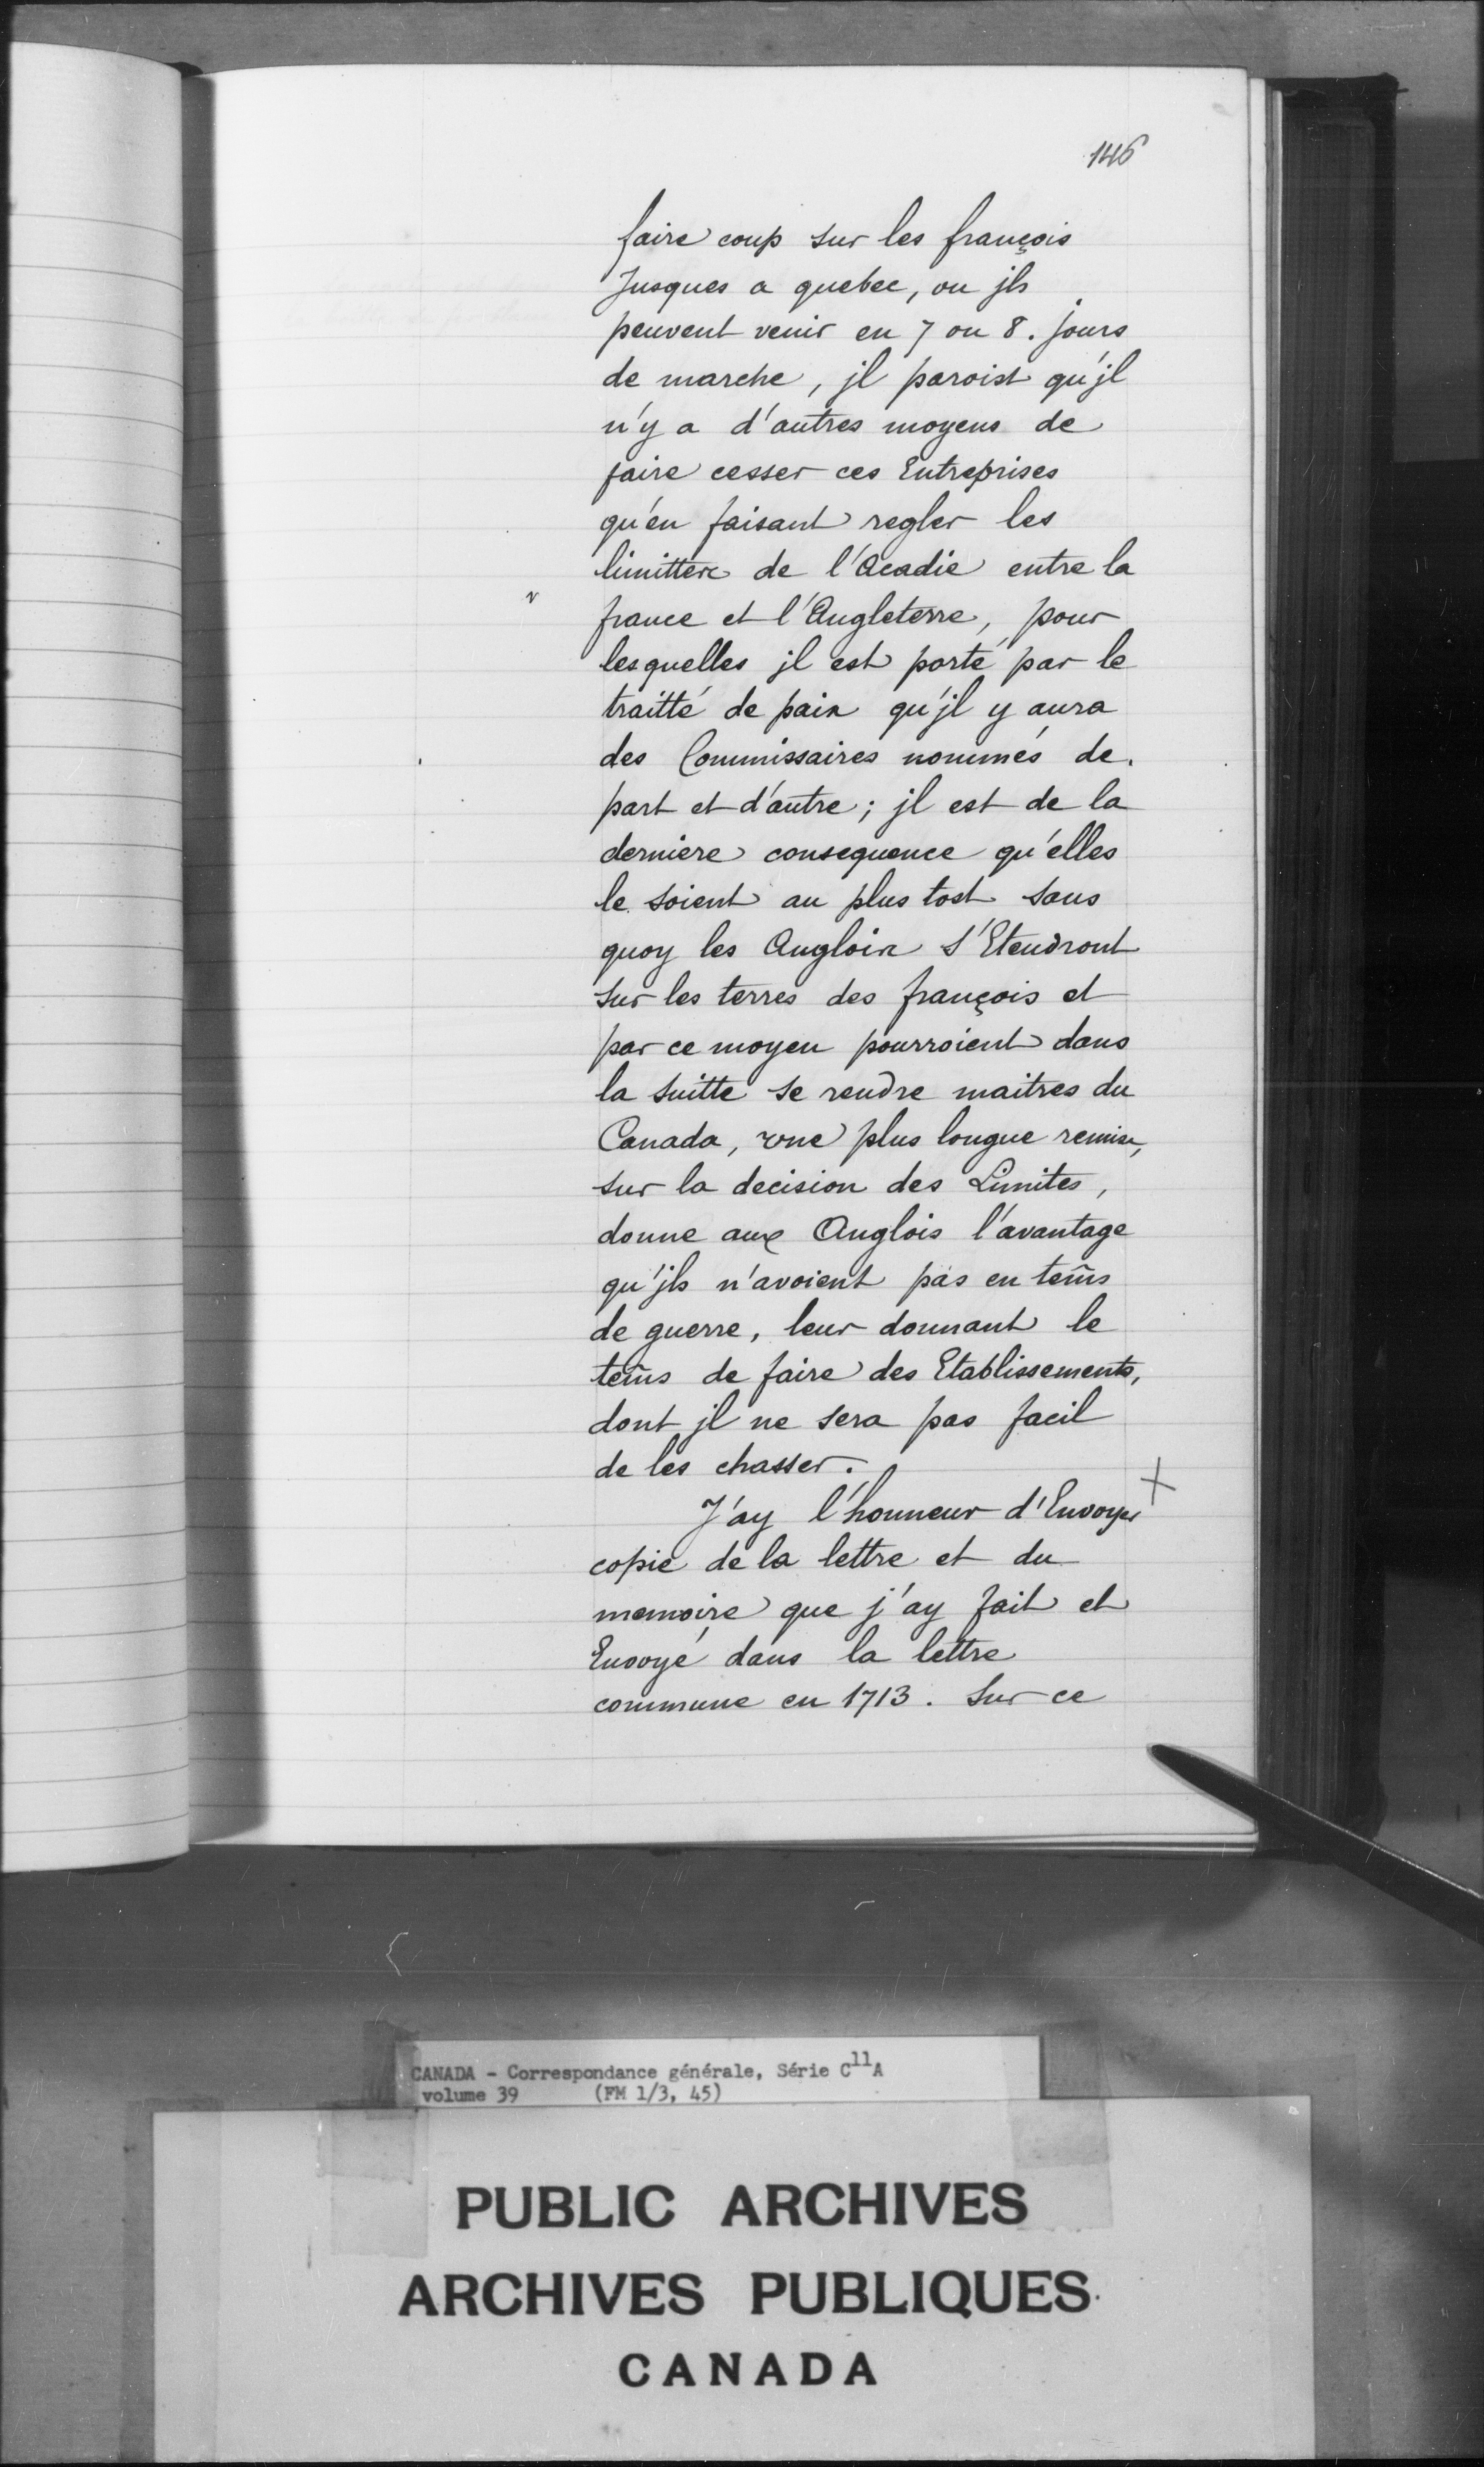 146
faire coup sur les françois
Jusques a quebec, ou jls
peuvent venir en 7 ou 8. jours
de marche, jl paroist qu'jl
n'y a d'autres moyens de
faire cesser ces Entreprises
qu'en faisant regler les
limitter de l'Acadie entre la
france et l'Angleterre, pour
lesquelles jl est porté par le
traitté de paix qu'jl y aura
des Commissaires nommés de
part et d'autre; jl est de la
derniere consequence qu'elles
le soient au plus tost sans
quoy les Anglois s'Etendront
sur les terres des françois et
par ce moyen pourroient dans
la suitte se rendre maitres du
Canada, une plus longue remise,
sur la decision des Limites,
donne aux Anglois l'avantage
qu'jls n'avoient pas en tem̃s
de guerre, leur donnant le
tem̃s de faire des Etablissements,
dont jl ne sera pas facil
de les chasser.
J'ay l'honneur d'Envoyer X
copie de la lettre et du
memoire que j'ay fait et
Envoyé dans la lettre
commune en 1713. Sur ce
CANADA - Correspondance générale, Série C11A
volume 39 (FM 1/3, 45)
PUBLIC ARCHIVES
ARCHIVES PUBLIQUES
CANADA